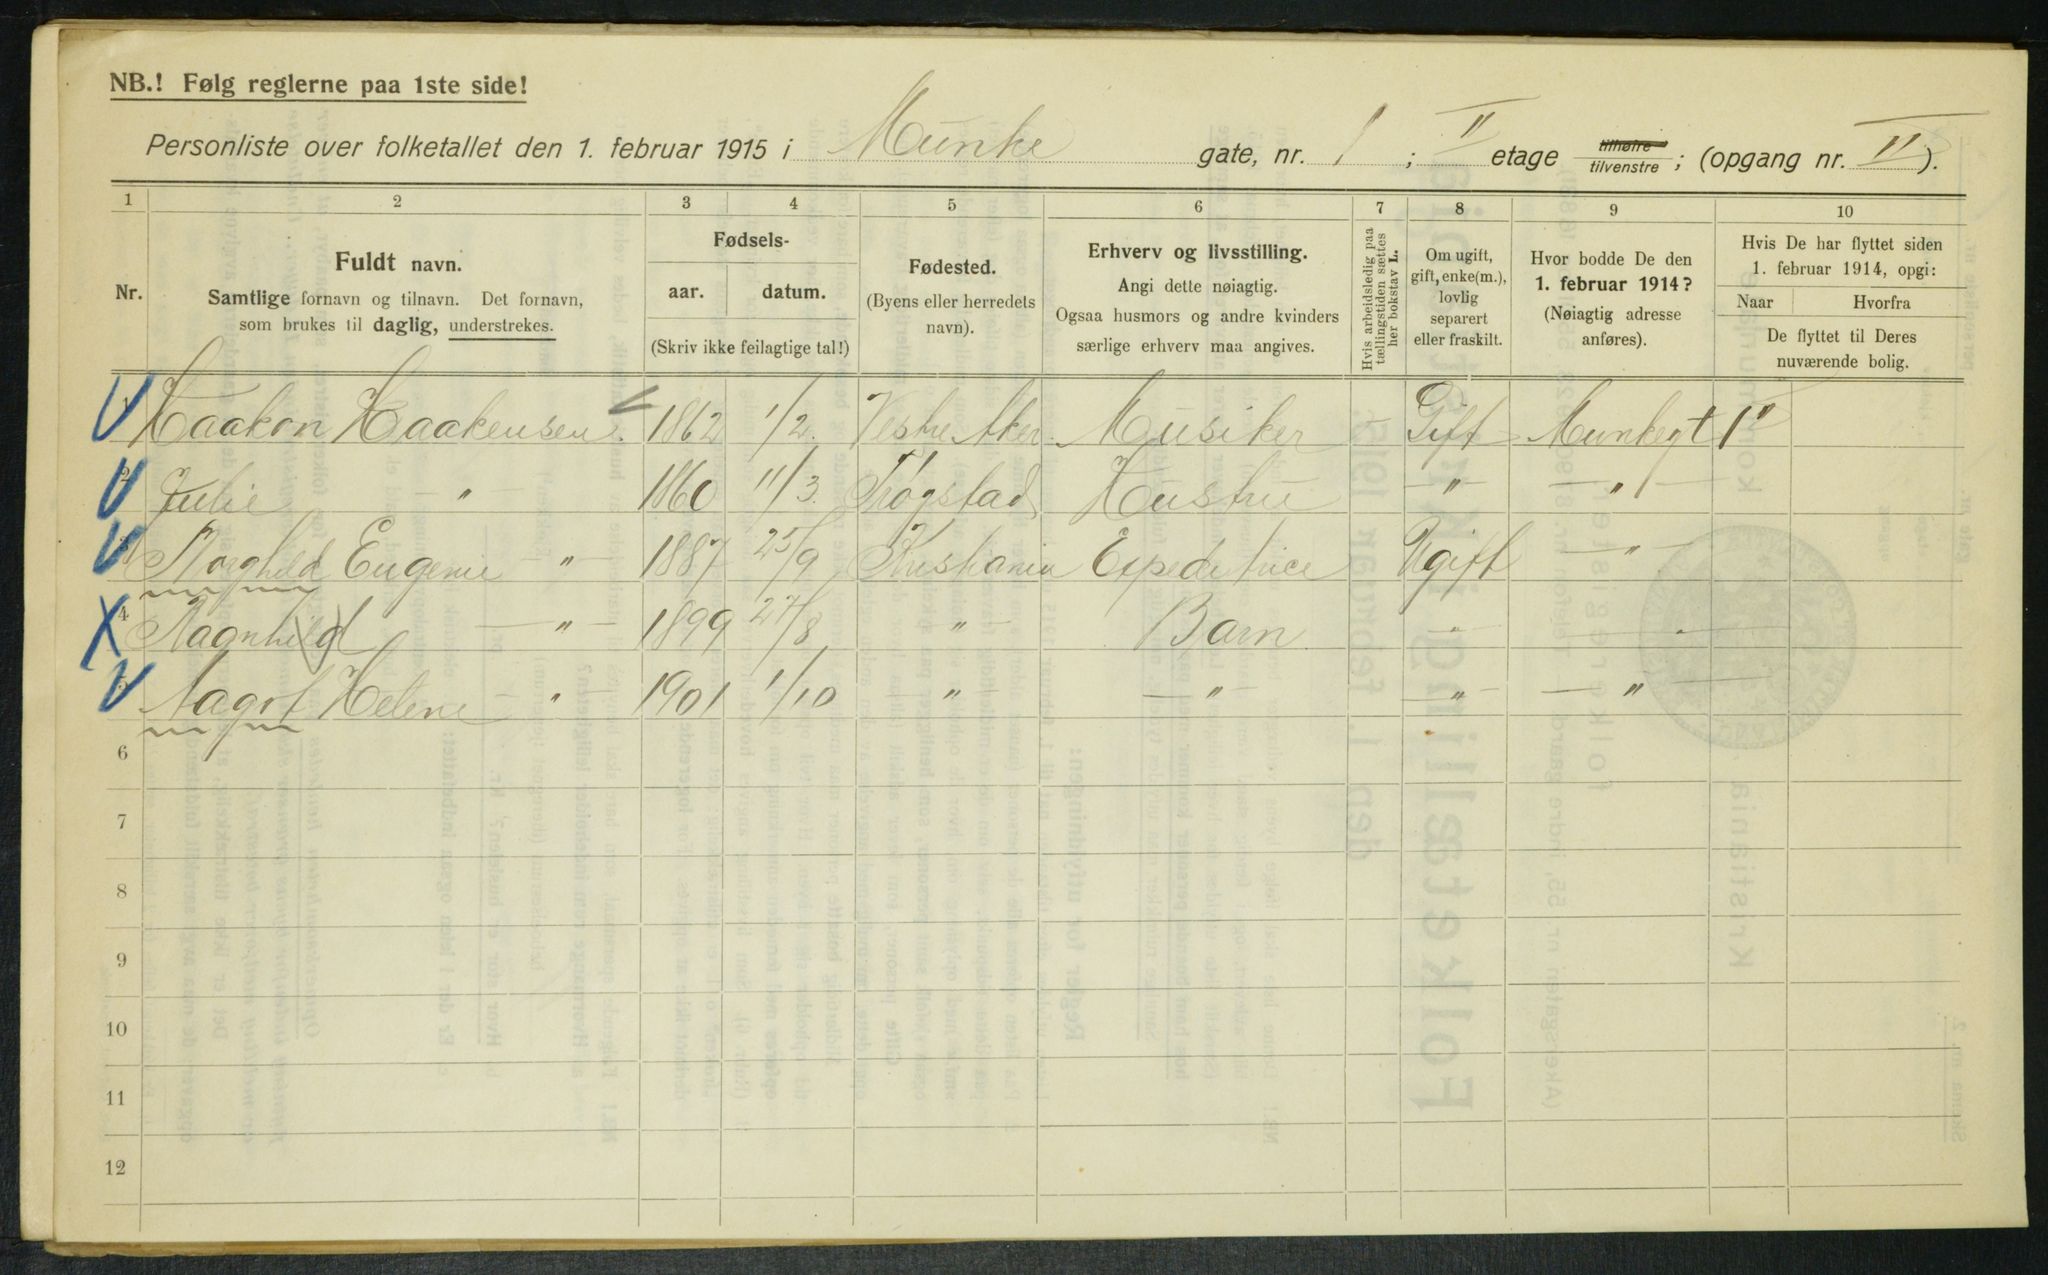 NB.! Følg reglerne paa 1ste side!
Personliste over folketallet den 1. februar 1915 i Munke gate, nr. 1 ; II etage tilhøire tilvenstre ; (opgang nr. II ).
1 2 3 4 5 6 7 8 9 10
Nr.
Fuldt navn.
Samtlige fornavn og tilnavn. Det fornavn,
som brukes til daglig, understrekes.
Fødsels-
aar. datum.
(Skriv ikke feilagtige tal!)
Fødested.
(Byens eller herredets
navn).
Erhverv og livsstilling.
Angi dette nøiagtig.
Ogsaa husmors og andre kvinders
særlige erhverv maa angives.
Hvis arbeidsledig paa
tællingstiden sættes
her bokstav L.
Om ugift,
gift, enke(m.),
lovlig
separert
eller fraskilt.
Hvor bodde De den
1. februar 1914?
(Nøiagtig adresse
anføres).
Hvis De har flyttet siden
1. februar 1914, opgi:
Naar Hvorfra
De flyttet til Deres
nuværende bolig.
1 Haakon Haakensen 1862 1/2. Vestre Aker Musiker Gift Munkegt 1 II
2 Julie " 1860 11/3. Trøgstad Hustru — " — — " —
3 Borghild Eugenie — " 1887 25/9 Kristiania Expeditrice Ugift — " —
4 Ragnhild — " — 1899 27/8 — " — Barn — " — — " —
5 Aagot Helene " — 1901 1/10 — " — — " — — " — — " —
6
7
8
9
10
11
12